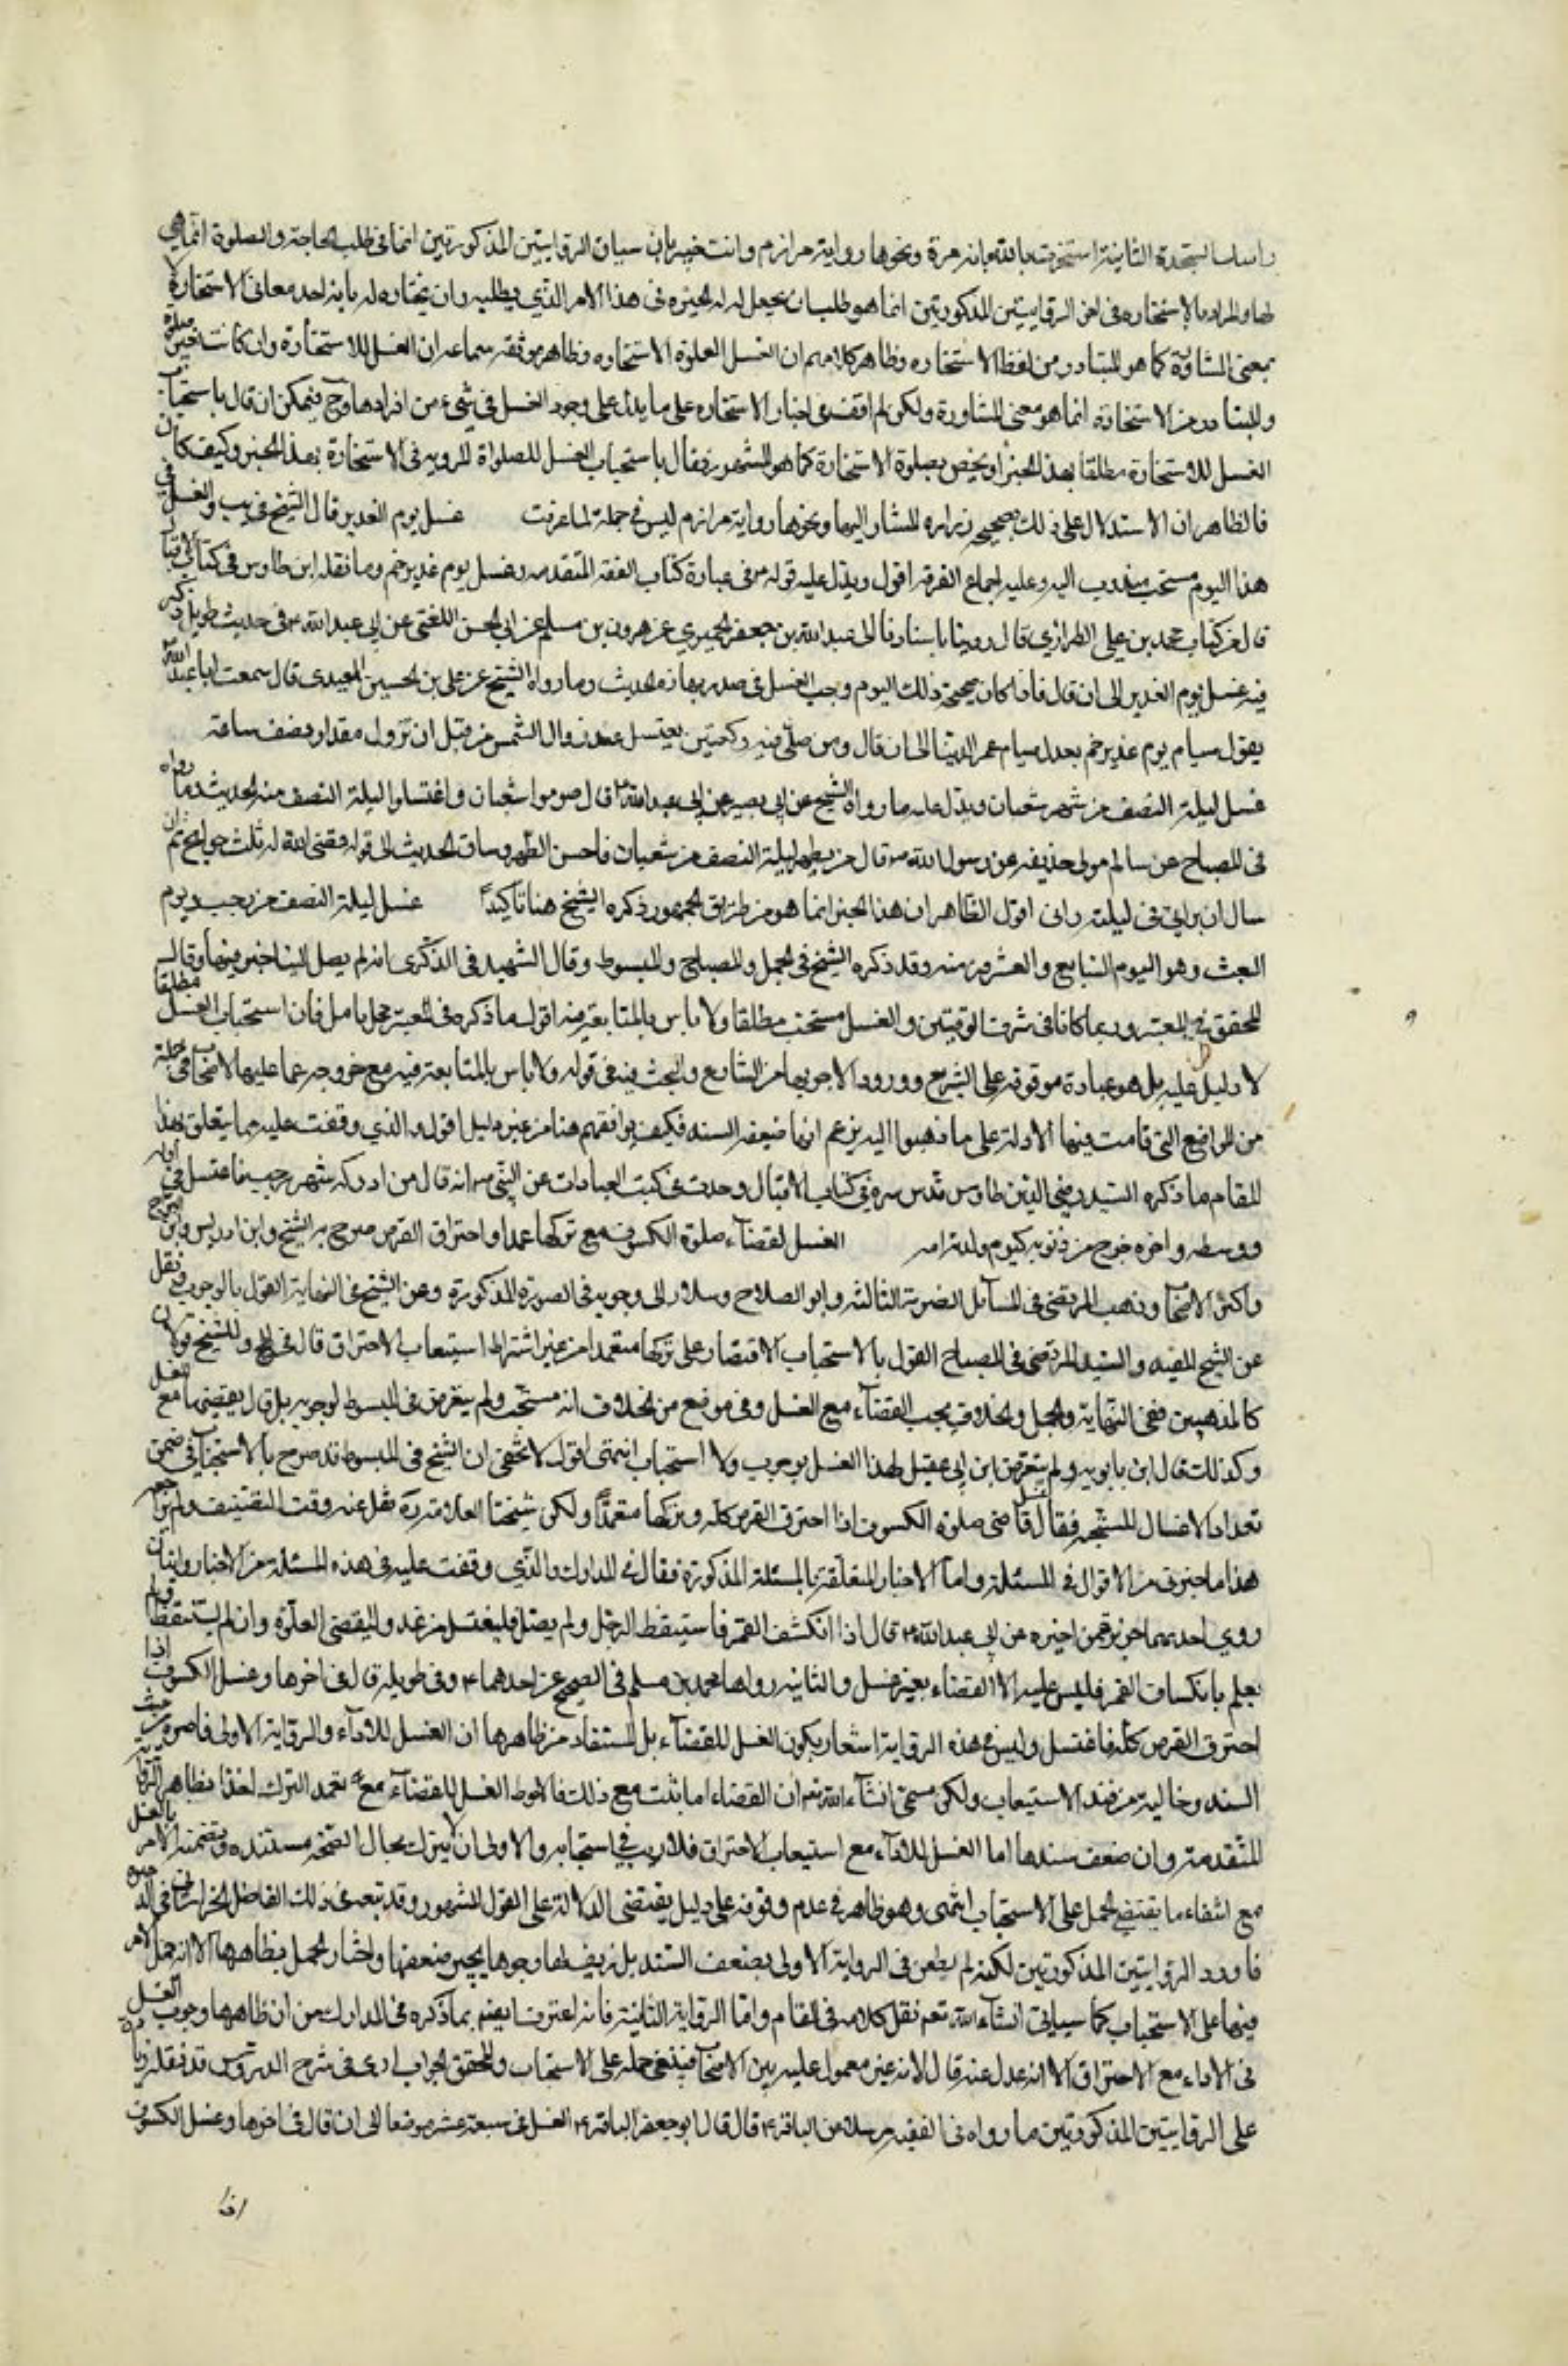 راسا السجدة الثانية استخرت بالله مائة مرة ونحوها رواية مرازم وانت خبير بان سياق الروايتين المذكورتين انما في طلب الحاجة والصلوة انما هي
لها والمراد بالاستخارة في الروايتين المذكورتين انما هو طلب ان يجعل له الخيرة في هذا الامر الذي يطلبه وان يختاره له بانه احد معاني الاستخارة لا
بمعنى المشاورة كما هو المتبادر من لفظ الاستخاره وظاهر كلامهم ان الغسل لصلوة الاستخاره وظاهر موثقه سماعه ان الغسل للاستخارة وان كانت بغير صلوة
والمتبادر من الاستخارة انما هو معنى المشاورة ولكن لم اقف في اخبار الاستخاره على ما يدل على وجود الغسل في شيء من افرادها وح فيمكن ان قال باستحباب
الغسل للاستخارة مطلقا بهذا الخبر او يخص بصلوة الاستخارة كما هو المشهور فقال باستحباب الغسل للصلواة المرويه في الاستخارة بهذا الخبر وكيف كان
فالظاهر ان الاستدلال على ذلك بصحيحه زراره المشار اليها ونحوها رواية مرازم ليس في جملة لما عرفت غسل يوم الغدير قال الشيخ في يب والغسل في
هذا اليوم مستحب مندوب اليه وعليه اجماع الفرقه اقول ويدل عليه قوله في عبارة كتاب الفقه المتقدمه وغسل يوم غدير خم وما نقله ابن طاوس في كتاب الاقبال
قال من كتاب محمد بن علي الطرازي قال روينا باسنادنا الى عبد الله بن جعفر الحميري عن هرون بن مسلم عن ابي الحسن الليثي عن ابي عبد الله ع في حديث طويل ذكر
فيه غسل يوم الغدير الى ان قال فاذا كان صبيحة ذلك اليوم وجب الغسل في صدر نهاره الحديث وما رواه الشيخ عن علي بن الحسين العبدي قال سمعت ابا عبد الله
يقول صيام يوم غدير خم يعدل صيام عمر الدنيا الى ان قال ومن صلى فيه ركعتين يغتسل عند زوال الشمس من قبل ان تزول مقدار نصف ساعة
غسل ليلة النصف من شهر شعبان ويدل عليه ما رواه الشيخ عن ابي بصير عن ابي عبد الله ع قال صوموا شعبان واغتسلوا ليلة النصف منه الحديث وما رواه
في المصباح عن سالم مولى حذيفه عن رسول الله ص قال من تطهر ليلة النصف من شعبان فاحسن الطهر وساق الحديث الى قوله قضى الله له ثلث حوايج ثم ان
سال ان يراني في ليلته راني اقول الظاهر ان هذا الخبر انما هو من طريق الجمهور ذكره الشيخ هنا تاكيدا غسل ليلة النصف من رجب ويوم
المبعث وهو اليوم السابع والعشرين منه وقد ذكره الشيخ في الجمل والمصباح والمبسوط وقال الشهيد في الذكرى انه لم يصل الينا خبر فيهما وقال
المحقق في المعتبر وربما كانا في شرف الوقتين والغسل مستحب مطلقا ولا باس بالمتابعة فيه اقول ما ذكره في المعتبر محل تامل فان استحباب الغسل مطلقا
لا دليل عليه بل هو عبادة موقوفه على الشرع وورود الامر بها من الشارع والبحث فيه في قوله ولا باس بالمتابعة فيه مع خروجه عما عليه الاصحاب في جملة
من المواضع التي قامت فيها الادلة على ما ذهبوا اليه بزعم انها ضعيفه السند فكيف يوافقهم هنا من غير دليل اقول والذي وقفت عليه مما يتعلق بهذا
المقام ما ذكره السيد رضي الدين طاوس قدس سره في كتاب الاقبال وجدت في كتب العبادات عن النبي ص انه قال من ادرك شهر رجب فاغتسل في اوله
ووسطه واخره خرج من ذنوبه كيوم ولدته امه الغسل لقضاء صلوة الكسوف مع تركها عمدا واحتراق القرص صرح به الشيخ وابن ادريس وابن البراج
واكثر الاصحاب وذهب المرتضى في المسائل المصرية الثالثه وابو الصلاح وسلار الى وجوبه في الصورة المذكورة وعن الشيخ في النهاية القول بالوجوب ونقل
عن الشيخ المفيد والسيد المرتضى في المصباح القول بالاستحباب الاقتصار على تركها متعمدا من غير اشتراط استيعاب الاحتراق قال في المخ وللشيخ قولان
كالمذهبين ففي النهاية والجمل والخلاف يجب القضاء مع الغسل وفي موضع من الخلاف انه مستحب ولم يتعرض في المبسوط لوجوبه بل قال يقضيها مع الغسل
وكذلك قال ابن بابويه ولم يتعرض ابن ابي عقيل لهذا الغسل بوجوب ولا استحباب انتهى اقول لا يخفى ان الشيخ في المبسوط قد صرح بالاستحباب في ضمن
تعداد الاغسال المستحبه فقال غسل قاضي صلوة الكسوف اذا احترق القرص كله وتركها متعمدا ولكن شيخنا العلامة ره غفل عنه وقت التصنيف ولم يراجعه
هذا ما حضرني من الاقوال في المسئلة واما الاخبار المتعلقة بالمسئلة المذكورة فقال في المدارك والذي وقفت عليه في هذه المسئلة من الاخبار روايتان
روى احديهما حريز عمن اخبره عن ابي عبد الله ع قال اذا انكسف القمر فاستيقظ الرجل ولم يصل فليغتسل من غد وليقض الصلوة وان لم يستيقظ ولم
يعلم بانكساف القمر فليس عليه الا القضاء بغير غسل والثانيه رواها محمد بن مسلم في الصحيح عن احدهما ع وفي طويلة قال في اخرها وغسل الكسوف اذا
احترق القرص كله فاغتسل وليس في هذه الرواية اشعار بكون الغسل للقضاء بل المستفاد من ظاهرها ان الغسل للاداء والرواية الاولى قاصره من حيث
السند وخالية من قيد الاستيعاب ولكن سيجئ انشاء الله تعم ان القضاء انما يثبت مع ذلك فالاحوط الغسل للقضاء مع تعمد الترك اخذا بظاهر الرواية
المتقدمة وان ضعف سندها اما الغسل للاداء مع استيعاب الاحتراق فلا ريب في استحبابه والاولى ان لا يترك بحال لصحة مستنده وتضمنه الامر بالغسل
مع انتفاء ما يقتضي الحمل على الاستحباب انتهى وهو ظاهر في عدم وقوفه على دليل يقتضي الدلالة على القول المشهور وقد تبعه في ذلك الفاضل الخراساني في الذخيره
فاورد الروايتين المذكورتين لكنه لم يطعن في الرواية الاولى بضعف السند بل زيف لها وجوها يجبر ضعفها واختار العمل بظاهرها الا انه حمل الامر
فيها على الاستحباب كما سياتي انشاء الله تعم نقل كلامه في المقام واما الرواية الثانية فانه اعترف ايضا بما ذكره في المدارك من ان ظاهرها وجوب الغسل
في الاداء مع الاحتراق الا انه عدل عنه قال لانه غير معمول عليه بين الاصحاب فينبغي حمله على الاستحباب والمحقق الخوانساري في شرح الدروس قد نقل زيادة
على الروايتين المذكورتين ما رواه في الفقيه مرسلا عن الباقر ع قال قال ابو جعفر الباقر ع الغسل في سبعة عشر موضعا الى ان قال في اخرها وغسل الكسوف
اذا